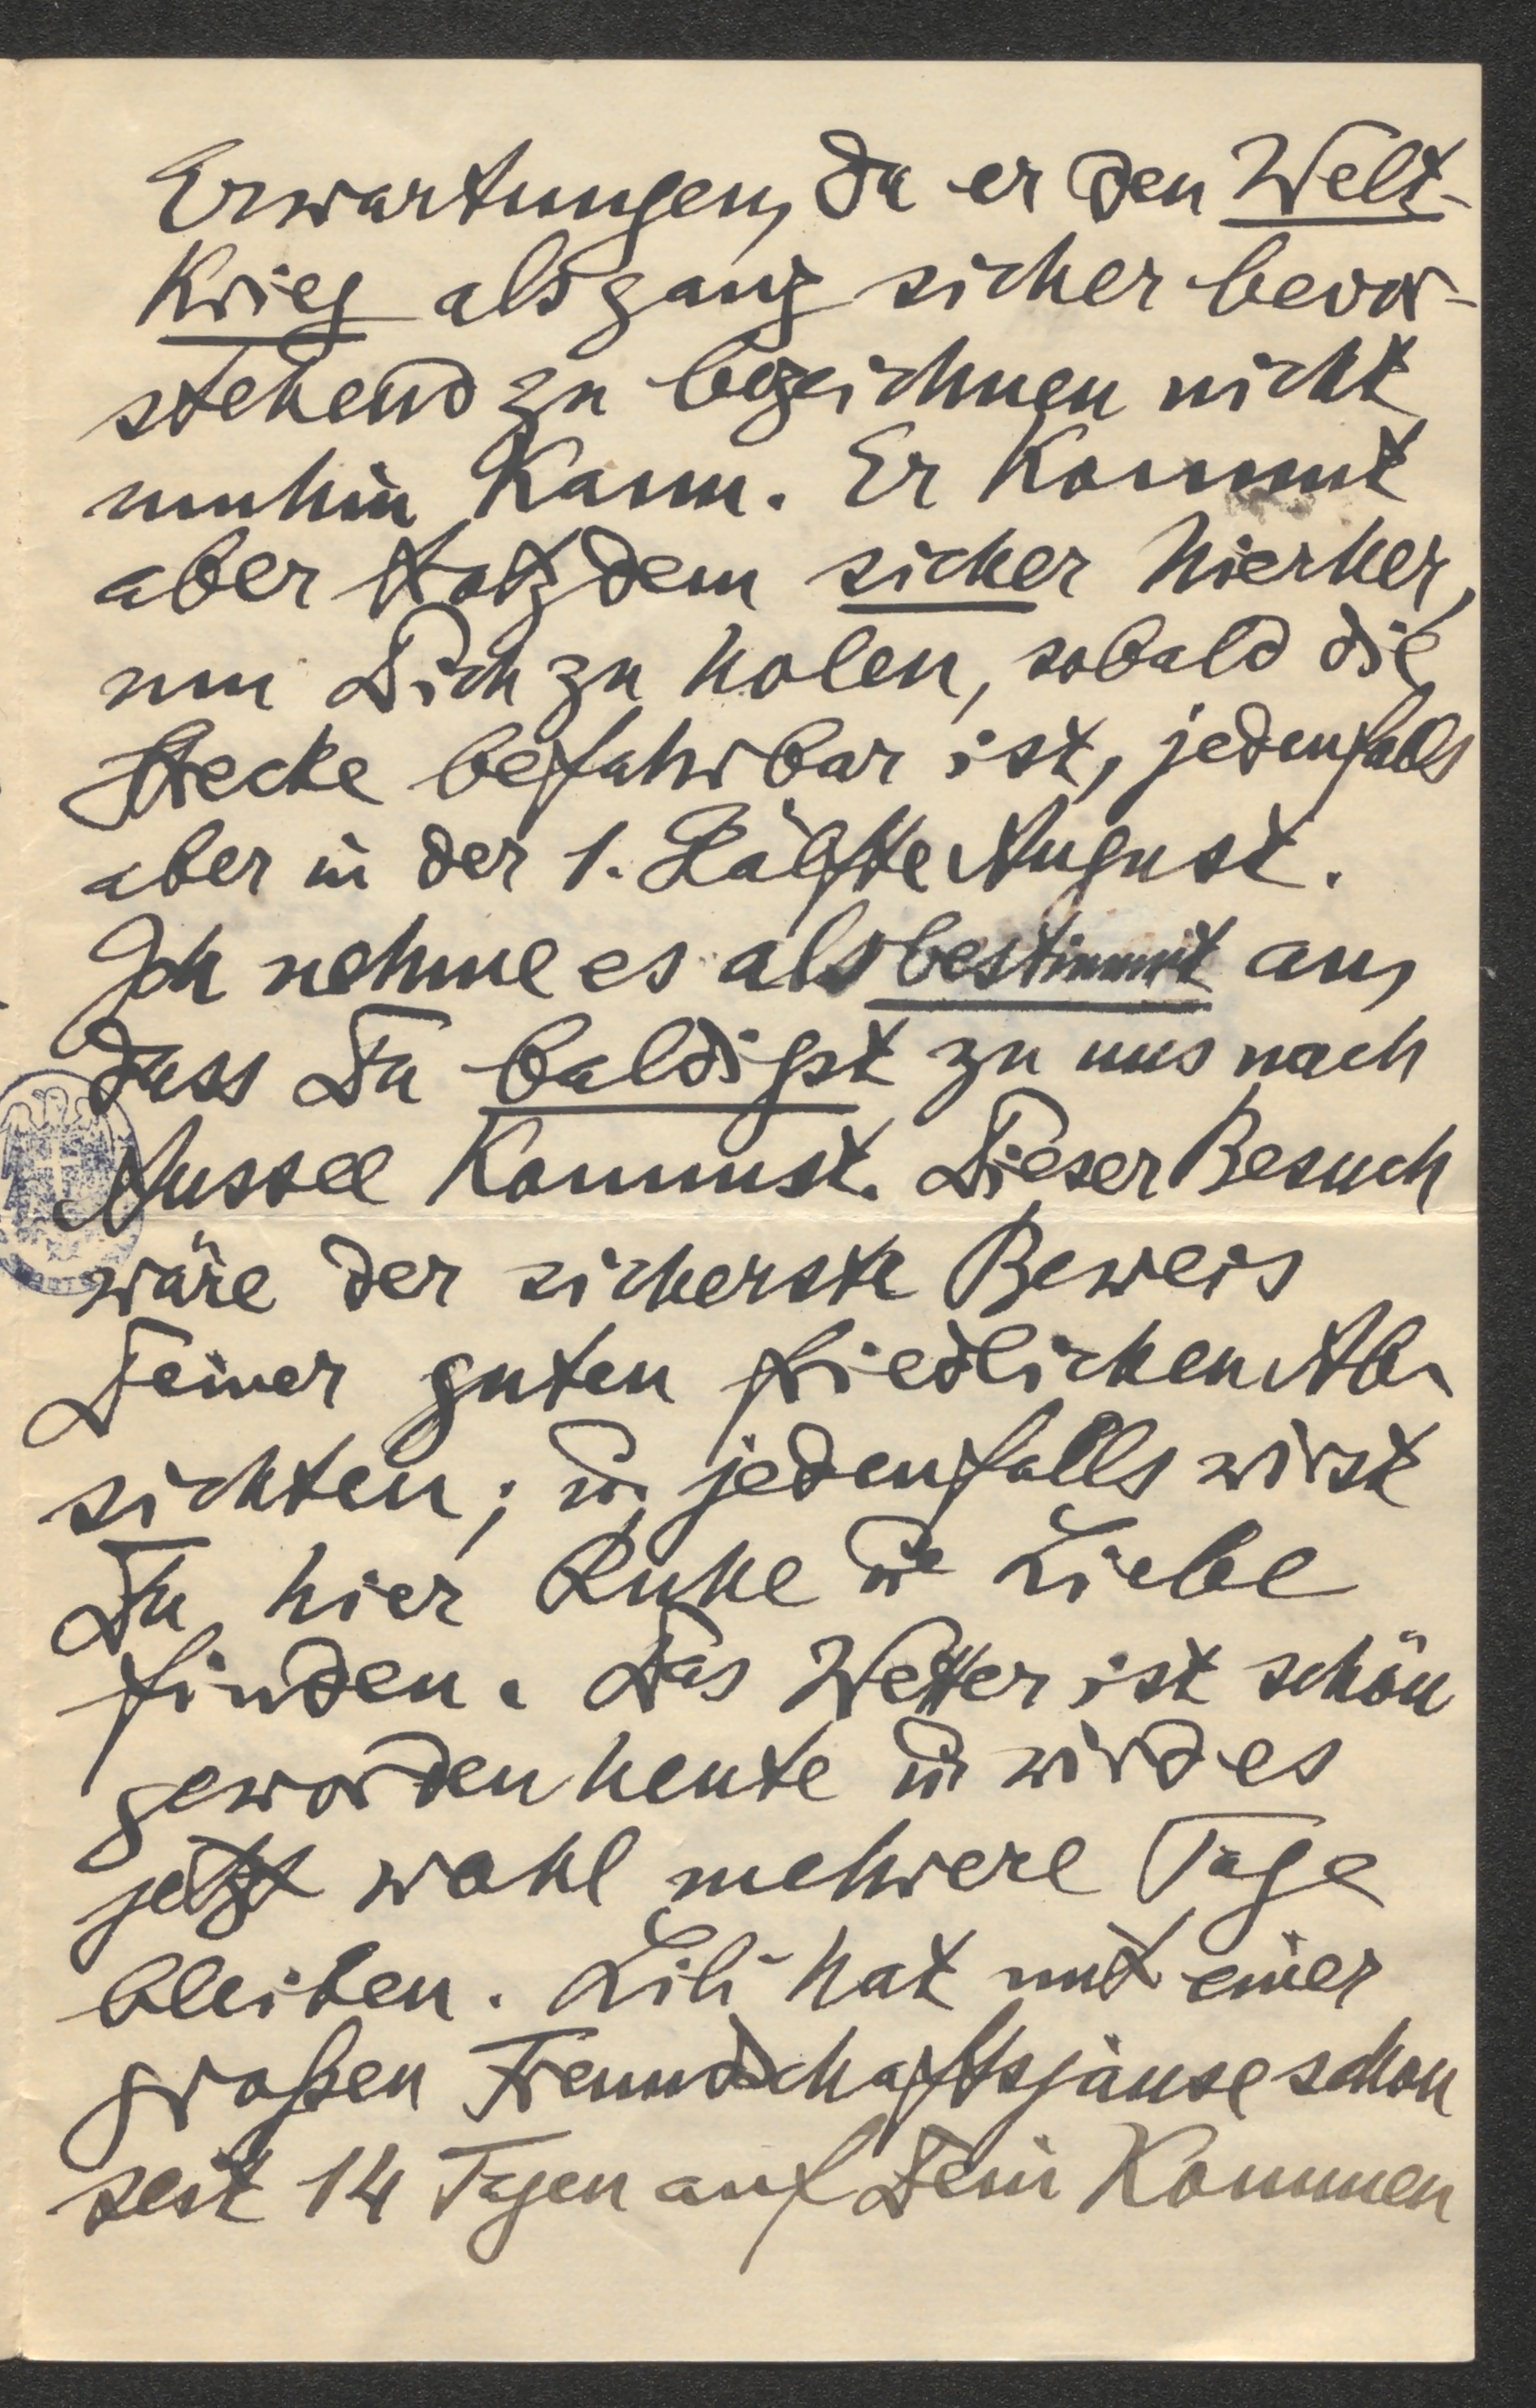 Erwartungen, da er den Welt-
Krieg als ganz sicher bevor-
stehend zu bezeichnen nicht
umhin kann. Er kommt
aber trotzdem sicher hierher,
um Dich zu holen, sobald die
Strecke befahrbar ist, jedenfalls
aber in der 1. Hälfte August.
Ich nehme es als bestimmt an,
dass Du baldigst zu uns nach
Aussee kommst. Dieser Besuch
wäre der sicherste Beweis
Deiner guten friedlichen Ab-
sichten; u. jedenfalls wirst
Du hier Ruhe u. Liebe
finden. Das Wetter ist schön
geworden heute u. wird es
jetzt wohl mehrere Tage
bleiben. Lili hat mit einer
großen Freundschaftsjause schon
seit 14 Tagen auf Dein Kommen